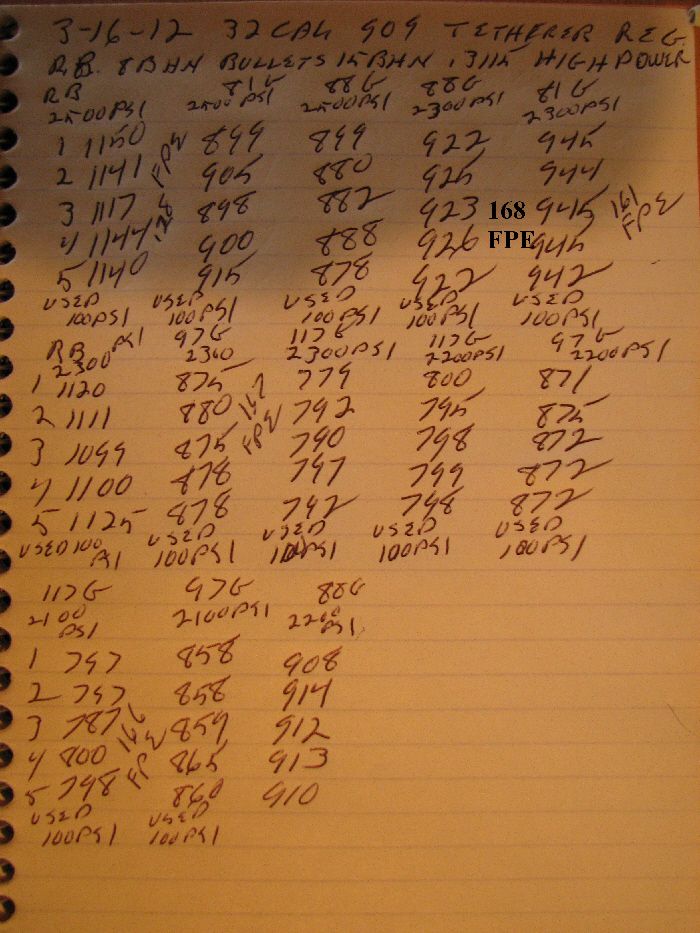 3-16-12 32 CAL 909 TETHERER REG.
R.B. 8BHN BULLETS 15BHN .3115 HIGH POWER
RB 81G 88G 88G 81G
2500PSI 2500PSI 2500PSI 2300PSI 2300PSI
1 1150 899 899 922 945
2 1141 905 880 925 944
3 1117 898 882 923 168 945
4 1144 900 888 926 FPE 945
5 1140 915 878 922 942
128 FPE
161 FPE
USED USED USED USED USED
100PSI 100PSI 100PSI 100PSI 100PSI
RB 97G 117G 117G 97G
2300 PSI 2300 2300PSI 2200PSI 2200PSI
1 1120 875 779 800 871
2 1111 880 792 795 875
3 1099 875 790 798 872
4 1100 878 797 799 872
5 1125 878 792 798 872
167 FPE
USED 100 USED USED USED USED
PSI 100PSI 100PSI 100PSI 100PSI
117G 97G 88G
2100 PSI 2100PSI 2200 PSI
1 797 858 908
2 797 858 914
3 787 859 912
4 800 865 913
5 798 860 910
166 FPE
USED USED
100PSI 100PSI